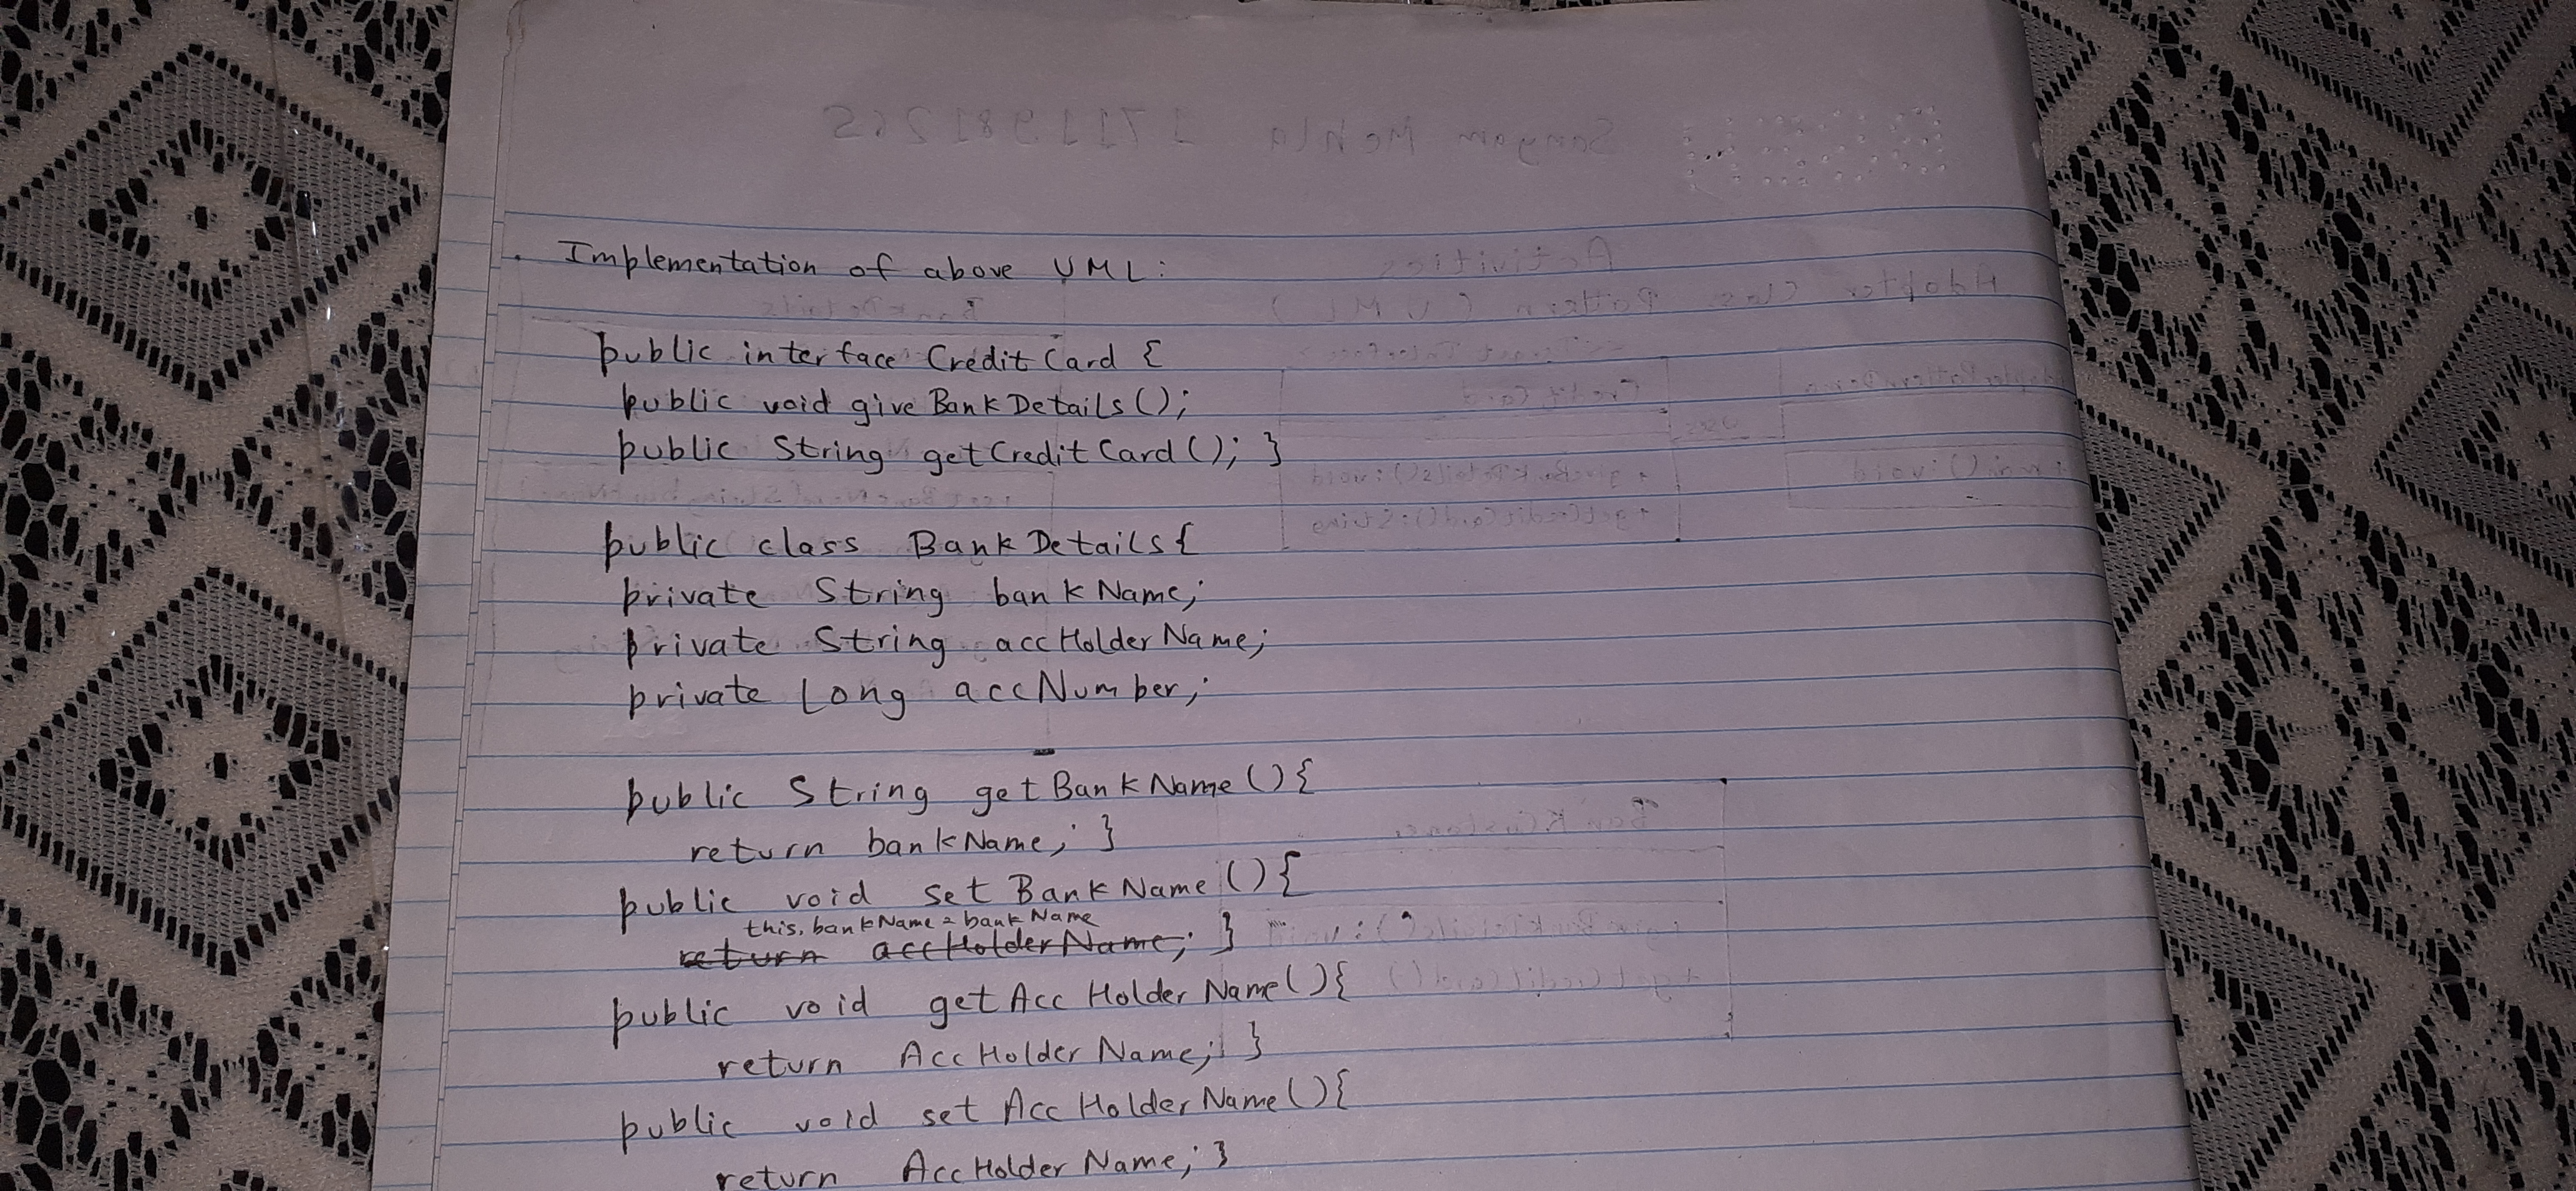 . Implementation of above UML:
public interface CreditCard {
public void giveBankDetails();
public String getCreditCard(); }
public class BankDetails{
private String bankName;
private String accHolderName;
private Long accNumber;
public String getBankName(){
return bankName; }
public void setBankName(){
this.bankName = bankName
return accHolderName; }
public void getAccHolderName(){
return AccHolderName; }
public void setAccHolderName(){
return AccHolderName; }